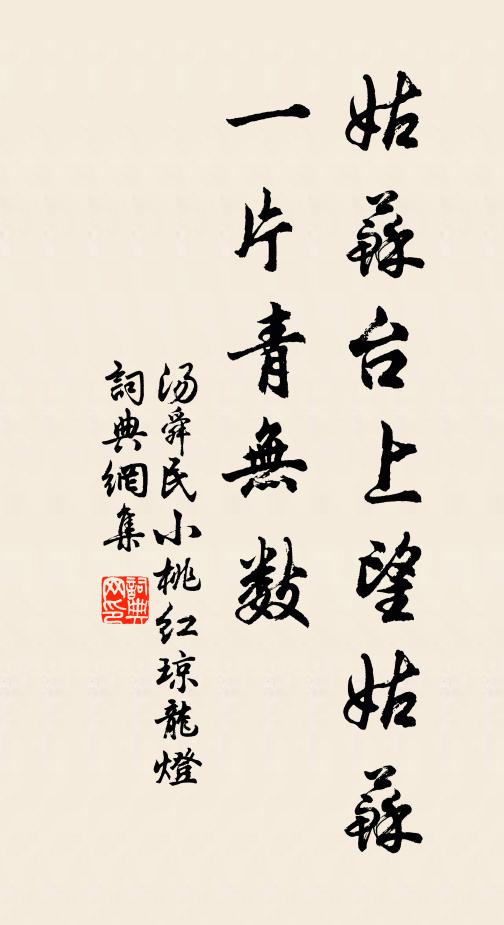 姑蘇台上望姑蘇
一片青無數
汤舜民小桃红琼龍燈
詞典網集
詞典网印